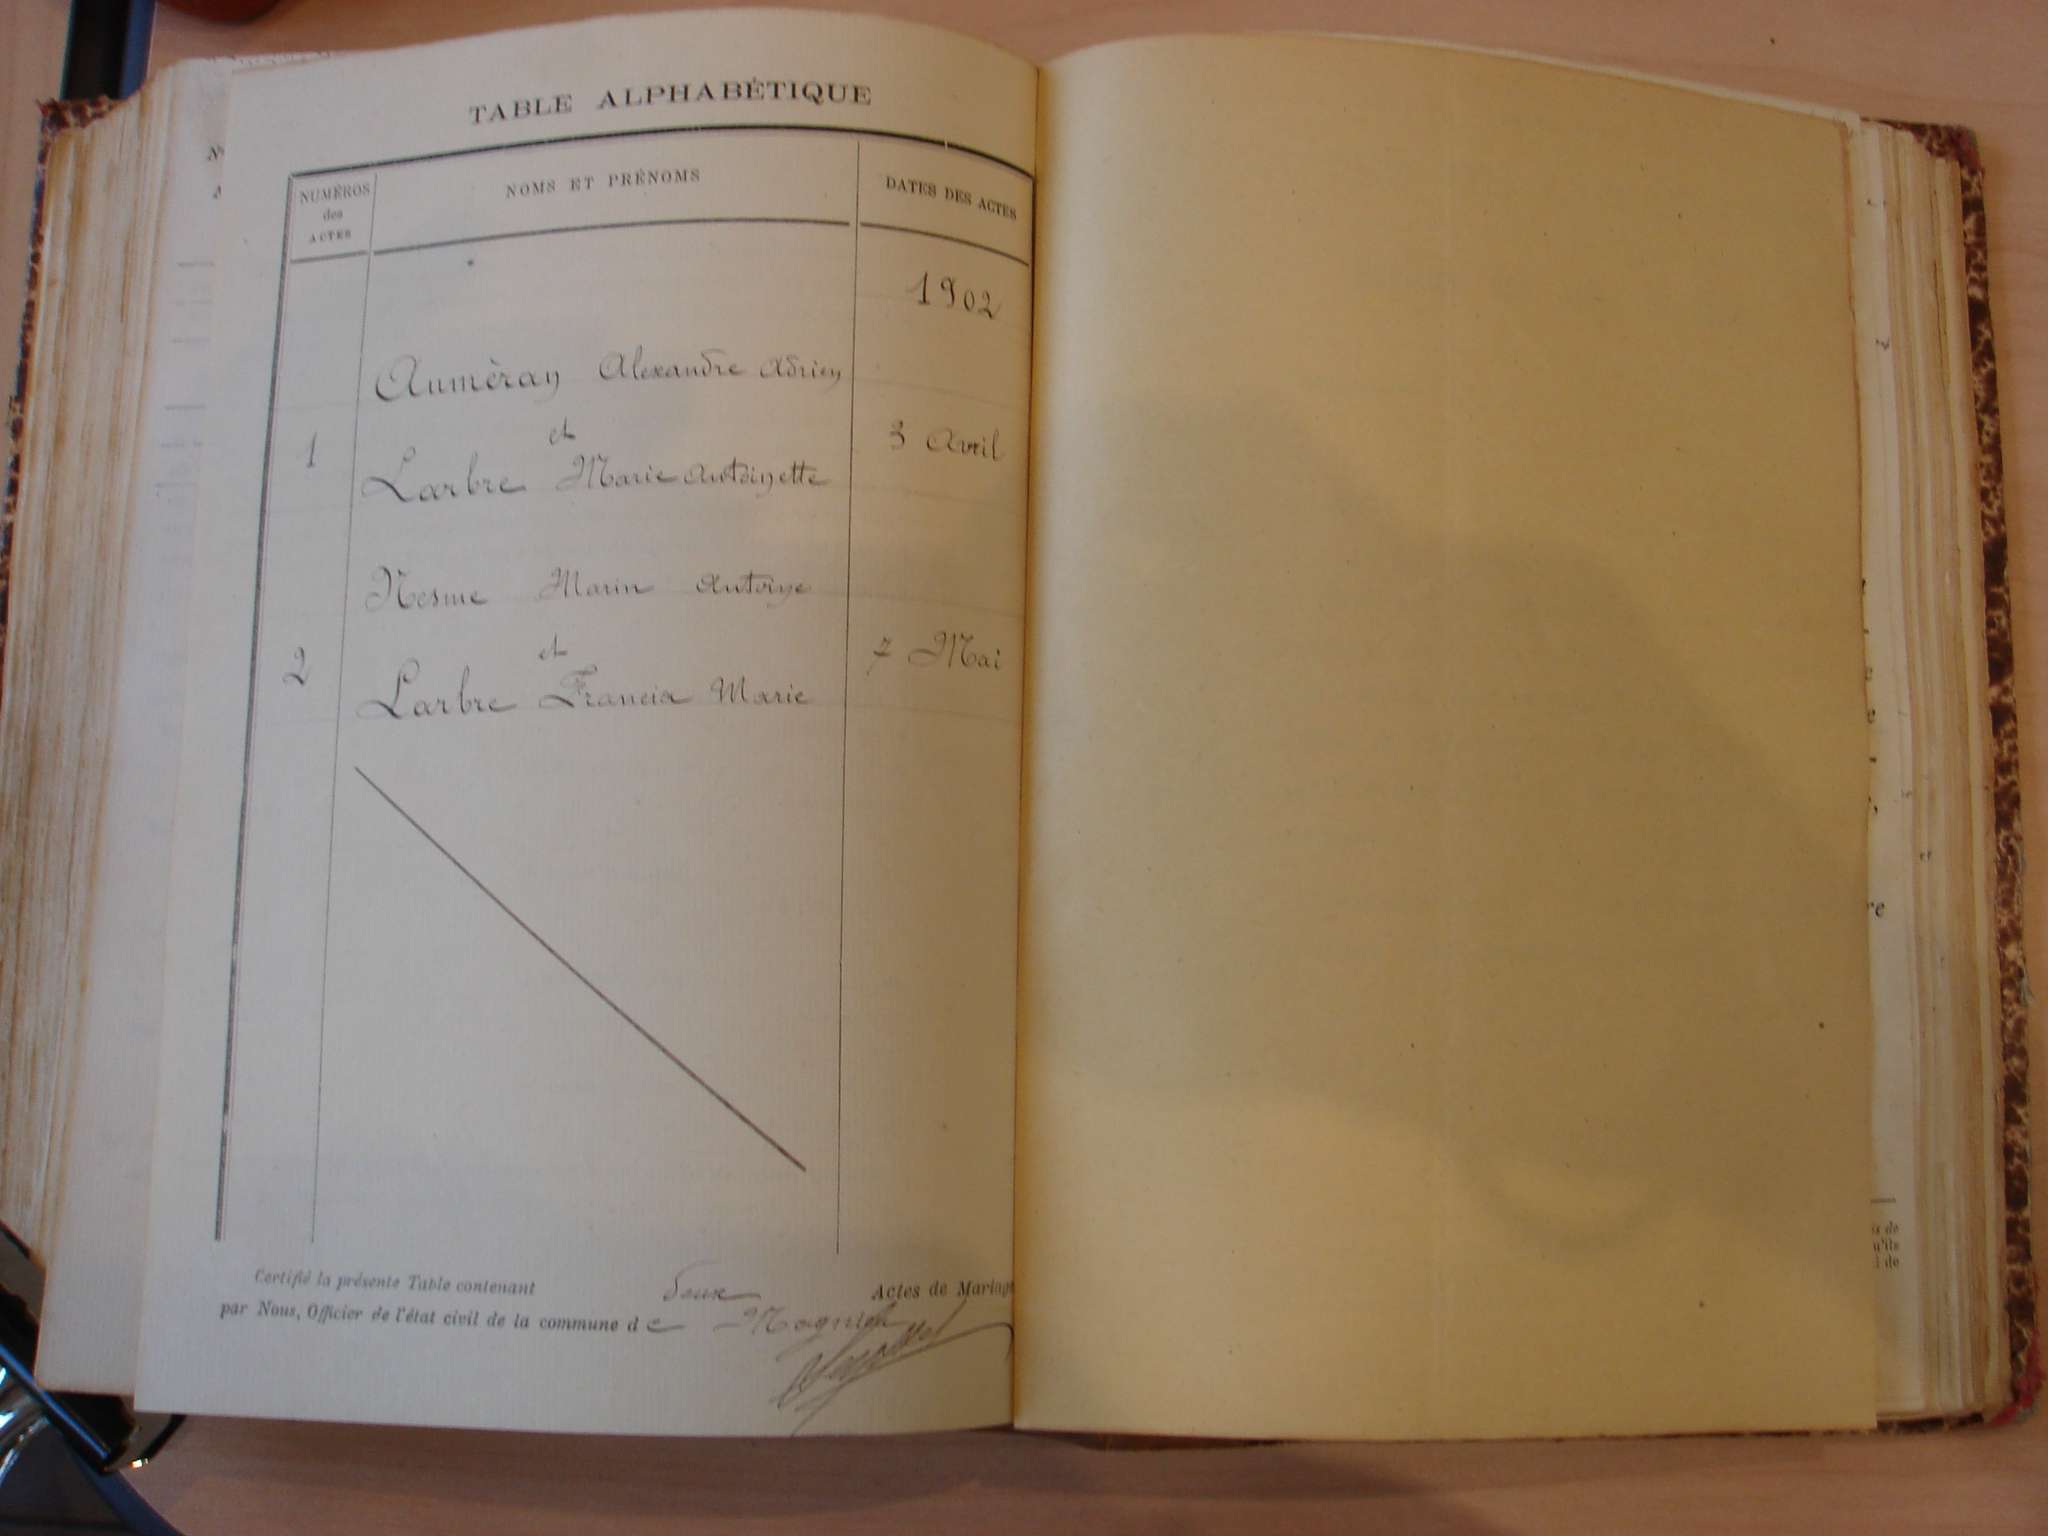 TABLE ALPHABÉTIQUE
NUMÉROS des ACTES
NOMS ET PRÉNOMS
DATES DES ACTES
1902
Aumèran Alexandre Adrien
1 et 3 Avril
Larbre Marie Antoinette
Nesme Marin Antoine
2 et 7 Mai
Larbre Francia Marie
Certifié la présente Table contenant deux Actes de Mariage
par Nous, Officier de l'état civil de la commune de